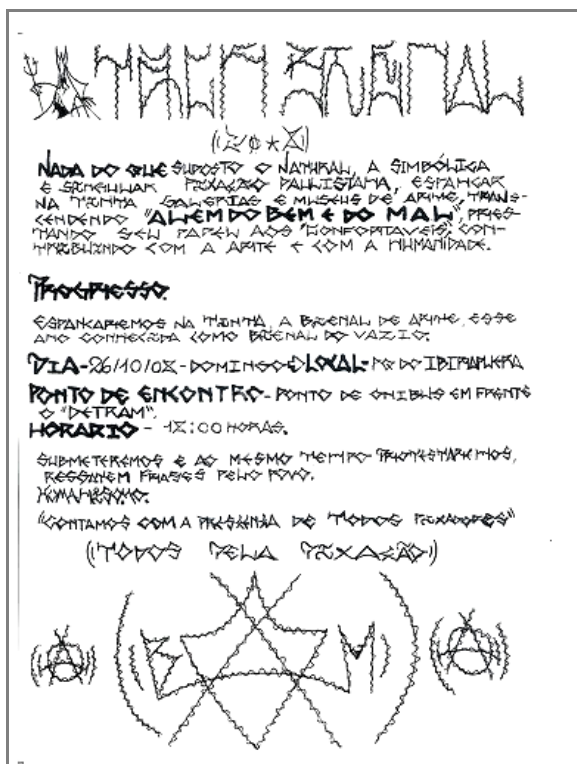 NADA DO QUE SUPOSTO O NATURAL, A SIMBÓLICA
E SINGULLAR PIXAÇÃO PAULISTANA, ESPANCAR
NA TINTA GALERIAS E MUSEUS DE ARTE, TRANS-
CENDENDO "ALÉM DO BEM E DO MAL", PRES-
TANDO SEU PAPEL AOS "CONFORTAVEIS", CON-
TRIBUINDO COM A ARTE E COM A HUMANIDADE.
PROGRESSO.
ESPANCAREMOS NA TINTA, A BIENAL DE ARTE, ESSE
ANO CONHECIDA COMO BIENAL DO VAZIO.
DIA-26/10/08-DOMINGO LOCAL-PQ DO IBIRAPUERA
PONTO DE ENCONTRO-PONTO DE ONIBUS EM FRENTE
O "DETRAM".
HORARIO - 18:00 HORAS.
SUBMETEREMOS E AO MESMO TEMPO PROTESTAREMOS,
FRASES PELO POVO.
"CONTAMOS COM A DE TODOS PIXADORES"
((TODOS PELA PIXAÇÃO))